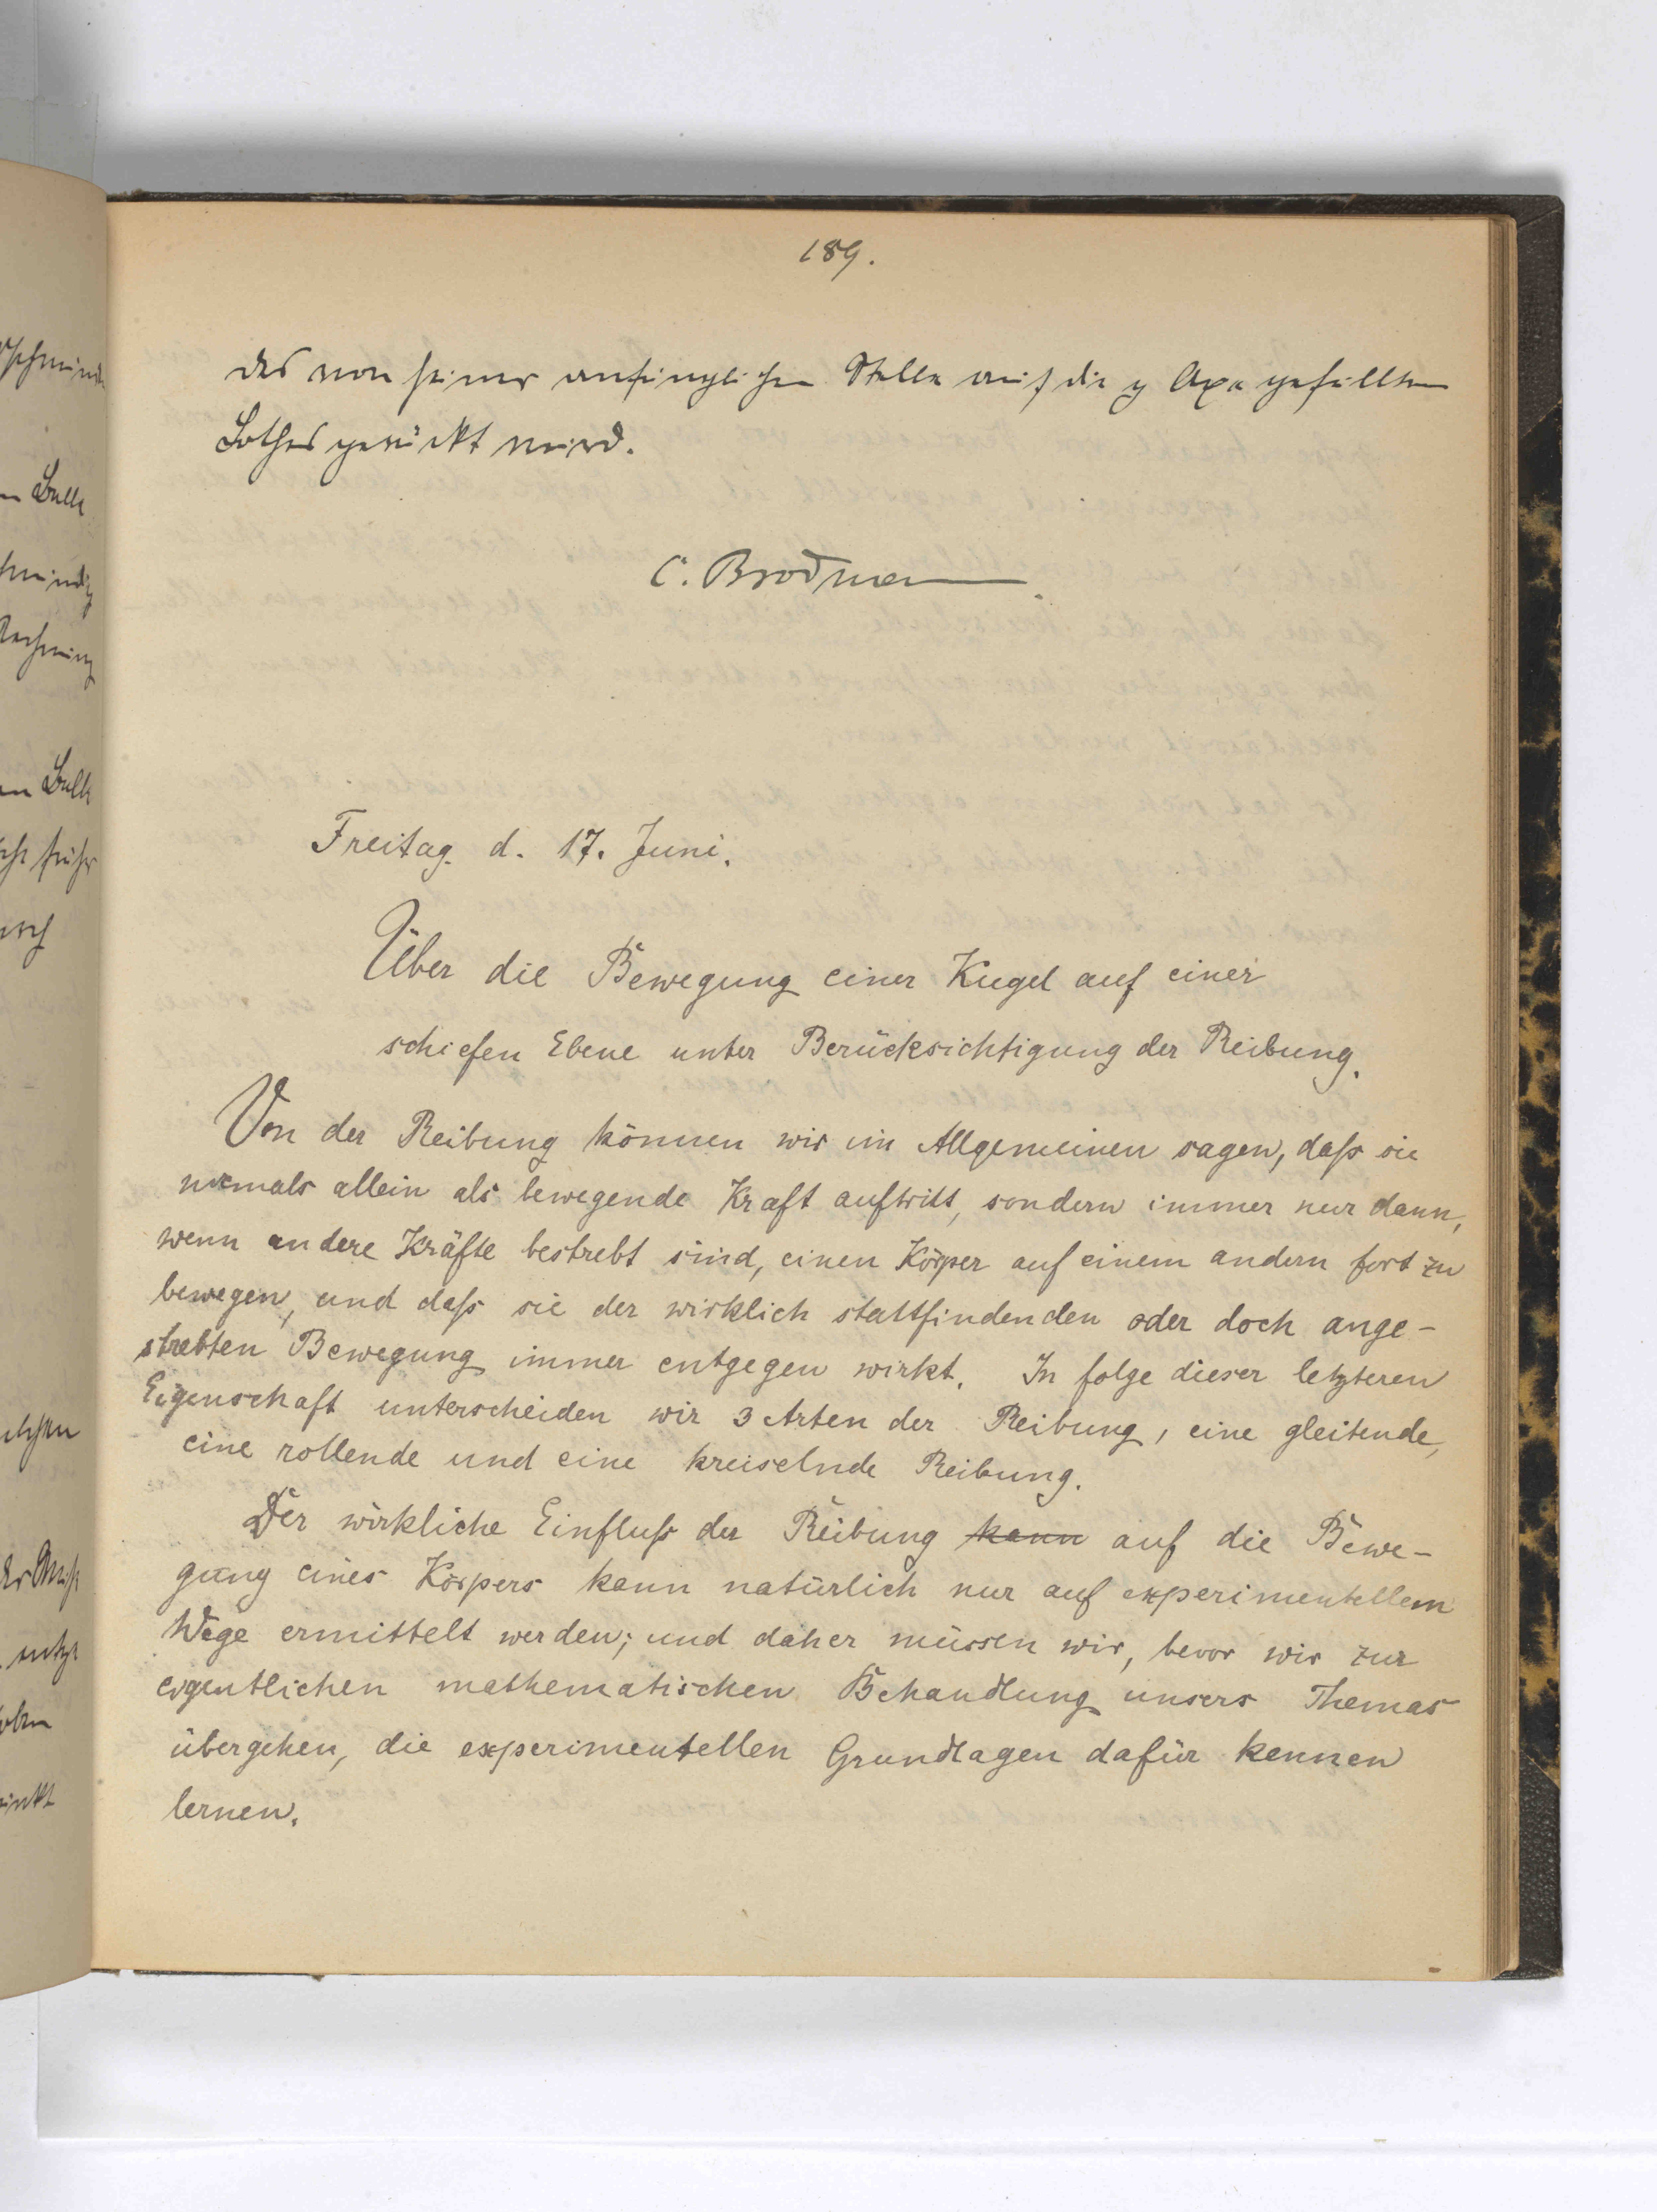 189.
des von seiner anfänglichen Stelle auf die y Axe gefällten
Lothes gerückt wird.
C. Brodmann.
Freitag d. 17. Juni.
Über die Bewegung einer Kugel auf einer
schiefen Ebene unter Berücksichtigung der Reibung.
Von der Reibung können wir im Allgemeinen sagen, daß sie
niemals allein als bewegende Kraft auftritt, sondern immer nur dann,
wenn andere Kräfte bestrebt sind, einen Körper auf einem andern fort zu
bewegen, und daß sie der wirklich stattfindenden oder doch ange-
strebten Bewegung immer entgegen wirkt. In folge dieser letzteren
Eigenschaft unterscheiden wir 3 Arten der Reibung, eine gleitende,
eine rollende und eine kreiselnde Reibung.
Der wirkliche Einfluß der Reibung kann auf die Bewe-
gung eines Körpers kann natürlich nur auf experimentellem
Wege ermittelt werden; und daher müssen wir, bevor wir zur
eigentlichen mathematischen Behandlung unsers Themas
übergehen, die experimentellen Grundlagen dafür kennen
lernen.